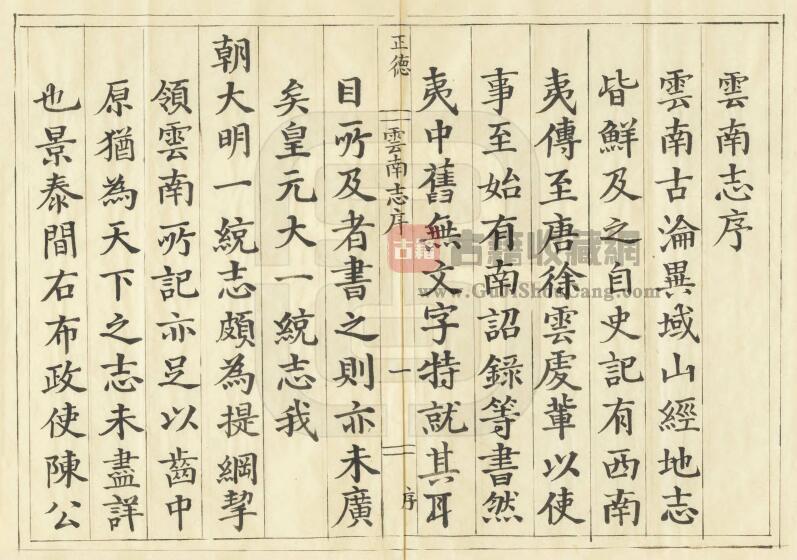 雲南志序
雲南古淪異域山經地志
皆鮮及之自史記有西南
夷傳至唐徐雲虔輩以使
事至始有南詔錄等書然
夷中舊無文字特就其耳
正德
雲南志序
一
序
目所及者書之則亦未廣
矣皇元大一統志我
朝大明一統志頗為提綱挈
領雲南所記亦足以齒中
原猶為天下之志未盡詳
也景泰間右布政使陳公
古籍
古籍收藏網
www.GuJiShouCang.com